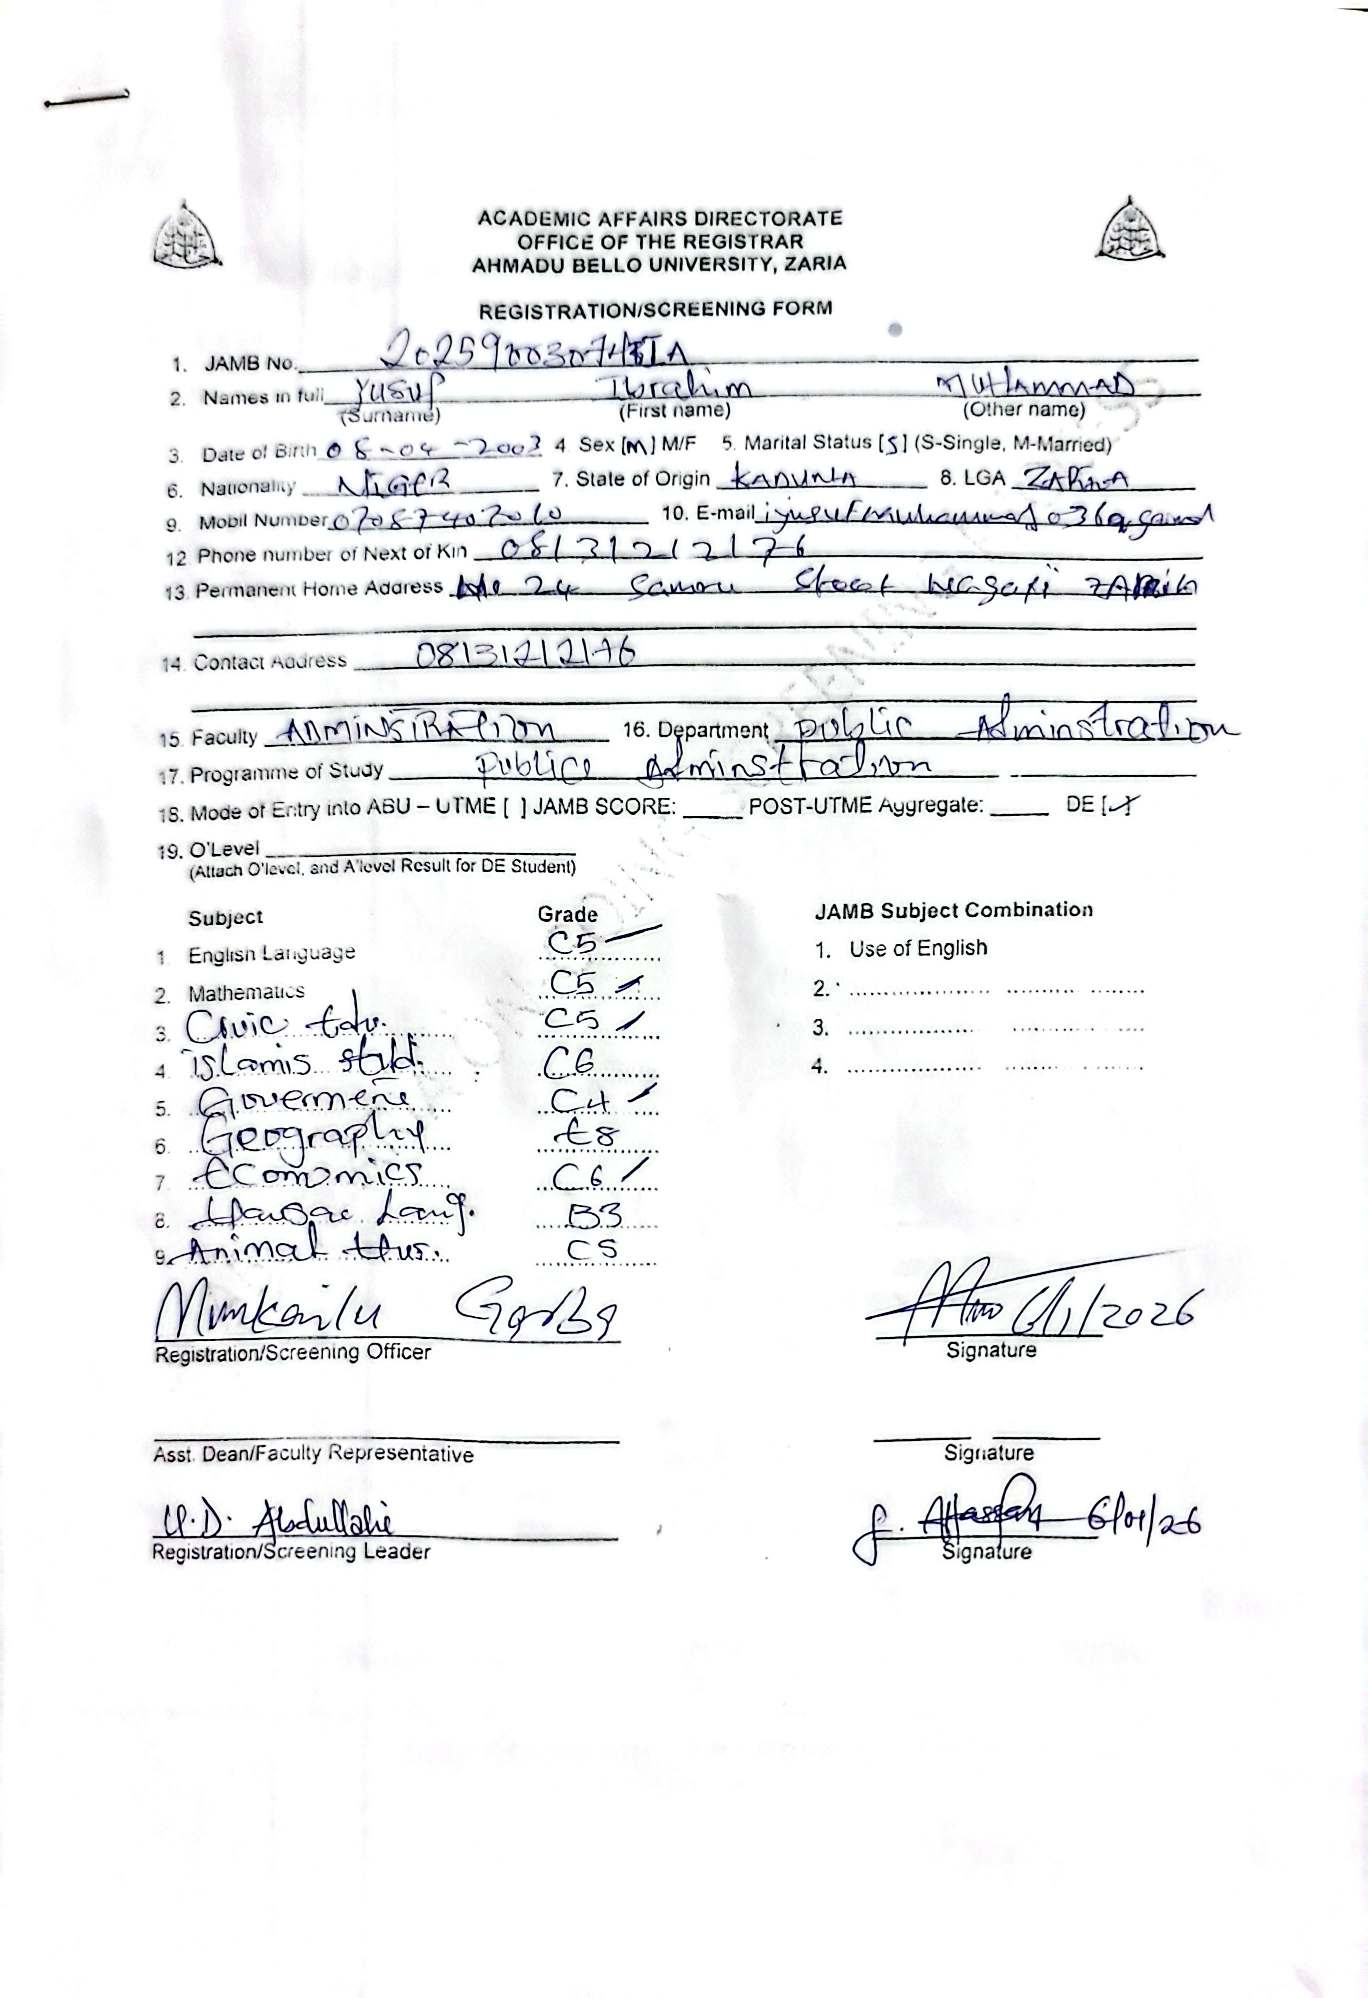 ACADEMIC AFFAIRS DIRECTORATE
OFFICE OF THE REGISTRAR
AHMADU BELLO UNIVERSITY, ZARIA
REGISTRATION/SCREENING FORM
1. JAMB No.
2. Names in full Yusuf Ibrahim MUHAMMAD
(Surname) (First name) (Other name)
3. Date of Birth 08-04-2003 4 Sex [M] M/F 5. Marital Status [S] (S-Single, M-Married)
6. Nationality NIGER 7. State of Origin KADUNA 8. LGA ZARIA
9. Mobil Number 07087407010 10. E-mail
12 Phone number of Next of Kin 08131212176
13. Permanent Home Address No 24 Samaru Street Wagari ZARIA
14. Contact Address 08131212176
15. Faculty ADMINISTRATION 16. Department public Adminstration
17. Programme of Study publice Adminstration
18. Mode of Entry into ABU – UTME [ ] JAMB SCORE: POST-UTME Aggregate: DE [✓]
19. O'Level
(Attach O'level, and A'level Result for DE Student)
Subject Grade JAMB Subject Combination
1 English Language C5 1. Use of English
2. Mathematics C5 2.
3. Civic Edu. C5 3.
4. islamis stud. C6 4.
5. Goverment C4
6. Geography E8
7. Economics C6
8. Hausa Lang. B3
9. Animal Hus. C5
Munkailu Garba 6/1/2026
Registration/Screening Officer Signature
Asst. Dean/Faculty Representative Signature
U.D. Abdullahi f. 6/01/26
Registration/Screening Leader Signature